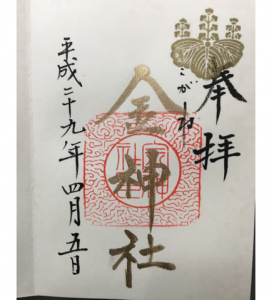 奉拝
こがね
金神社
平成二十九年四月五日